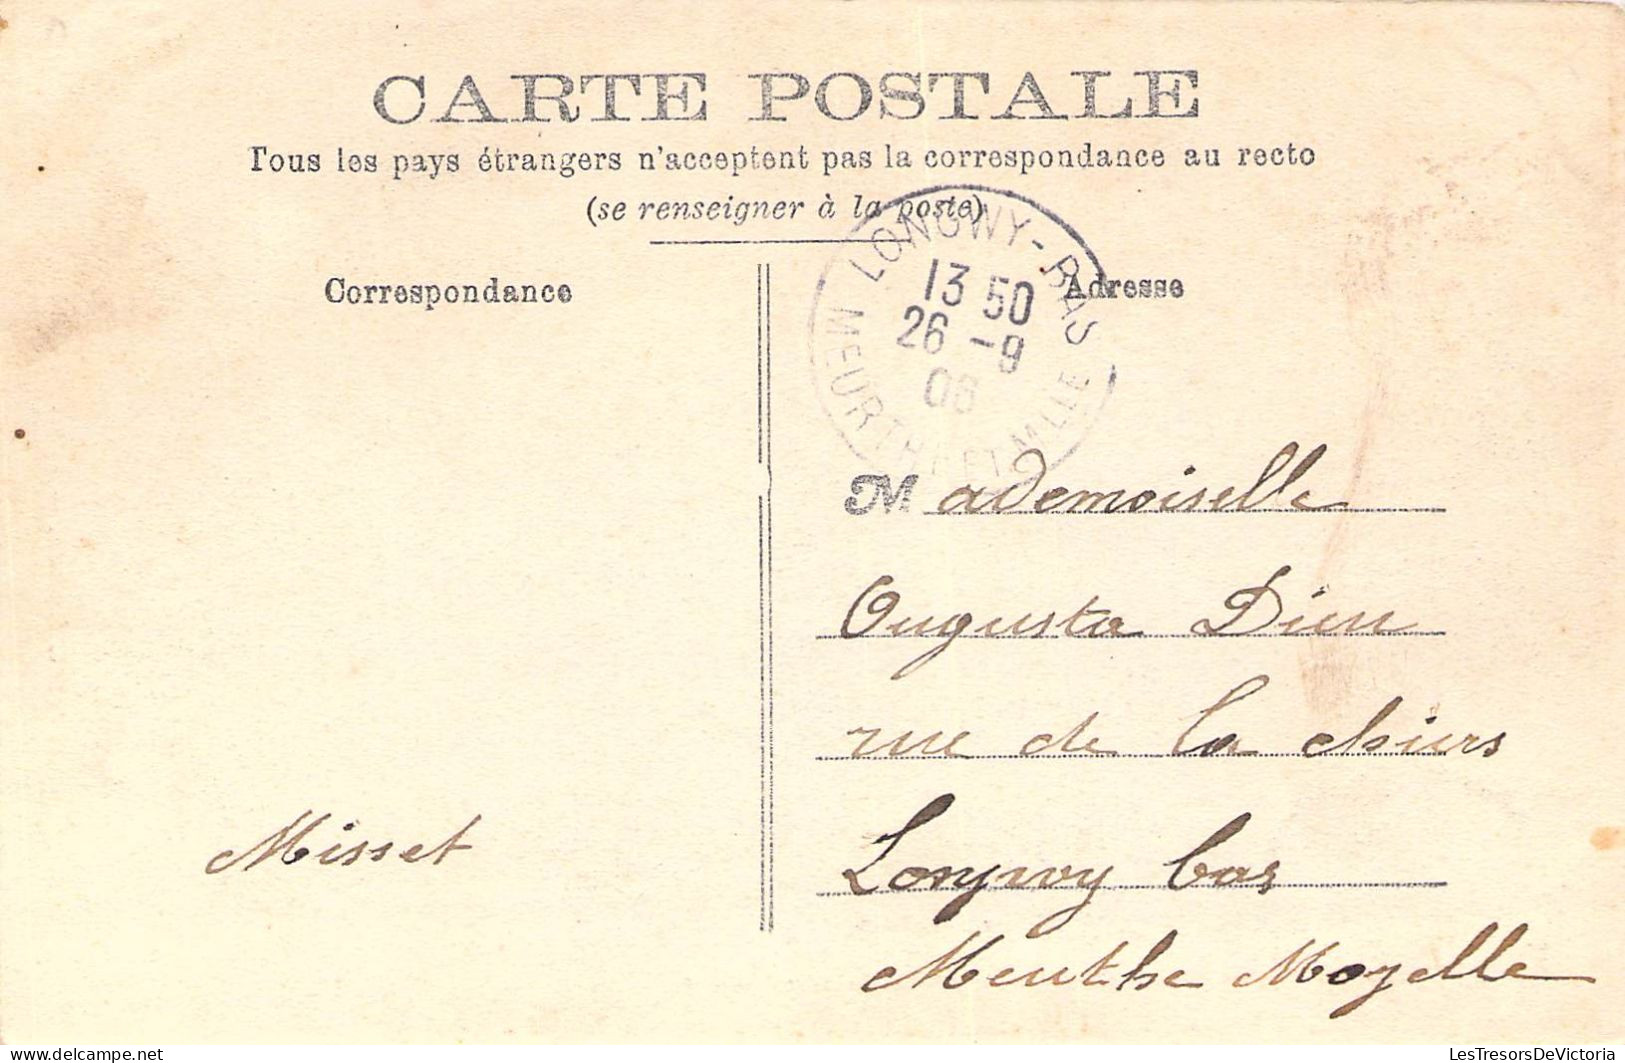 CARTE POSTALE
Tous les pays étrangers n'acceptent pas la correspondance au recto
(se renseigner à la poste)
Correspondance
Adresse
LONGWY-BAS
13 50
26 -9
MEURTHE ET MLLE
Mademoiselle
Augusta
rue de la chiers
Longwy bas
Meuthe Mozelle
Misset
LesTresorsDeVictoria